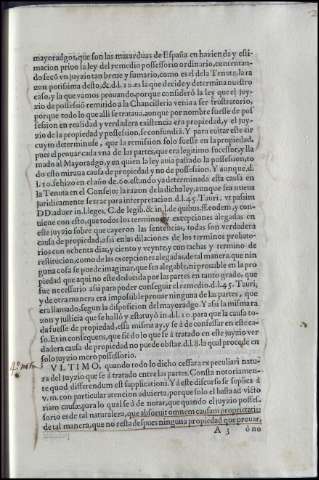 mayoradgos, que son las mas arduas de España en hazienda y esti-
macion privo la ley del remedio possessorio ordinario, contentan-
dose cõ vn juyzio tan breue y sumario, como es el dela Tenuta, la ra
zon porissima desto, &c. dd. 10. es la que decide y determina nuestro
caso, y la que vamos pensando, porque consideró la ley que el juy-
zio de possessiõ remitido a la Chancilleria venia a ser frustratorio,
porque todo lo que alli se tratava, aunque por nombre fuesse de pos-
session en realidad y verdadera existencia era propiedad, y el juy-
zio de la propiedad y possession, se confundia. Y para euitar este cir
cuyto determinose, que la remission solo fuesse en la propiedad,
pues el pensar cada vna de las partes, que era legitimo sucessor, y lla
mado al Mayoradgo, y en quien la ley auia passado la possession, to
do esto miraua causa de propiedad y no de possession. Y aunque, d.
l. 10. se hizo en el año de 60. estando ya determinada esta causa en
la Tenuta en el Consejo: la razon de la dicha ley, aunque sea nueua
juridicamente se trae para interpretacion. d. l. 45. Tauri. vt passim
DD. aducũt in. l. leges. C. de legib. & in. l. de quibus. ff. eodem, y con-
tiene con esto, que todos los terminos y excepciones alegadas en
este juyzio sobre que cayeron las sentencias, todas son verdadera
causa de propiedad, assi en las dilaciones de los terminos probato-
rios con ochenta dias, y ciento y veynte, y con tachas y termino de
restitucion, como de las excepciones alegadas, de tal manera, que nin
guna cosa se puede imaginar, que sea alegable, ni prouable en la pro
piedad que aqui no este deduzida por las partes en tanto grado, que
fue necessario assi para poder conseguir el remedio. d. l. 45. Tauri,
y de otra manera era impossible prouar ninguna de las partes, que
era llamado, segun la disposicion del mayoradgo. Y assi la misma ra
zon y justicia que se halló y estatuyó in d. l. 10. para que la causa to-
da fuesse de propiedad, essa misma ay, y se á de confessar en este ca-
so. Et in consequens, que si de lo que se á tratado en este juyzio ver-
dadera causa de propiedad no puede obstar. d. l. 8. la qual procede en
solo juyzio mero possessorio.
VLTIMO, quando todo lo dicho cessara es peculiar natura
del juyzio que se á tratado entre las partes. Consta notoriamen-
te quod differendum est supplicationi. Y á este discurso se suplica á
v. m. con particular atencion aduierta, porque solo el basta ad victo
riam causæ: para lo qual se á de notar, que quando el juyzio posses-
sorio es de tal naturaleza, que absoruit omnem causam proprietatis
de tal manera, que no resta despues ninguna propiedad que prouar,
A 3 ò no